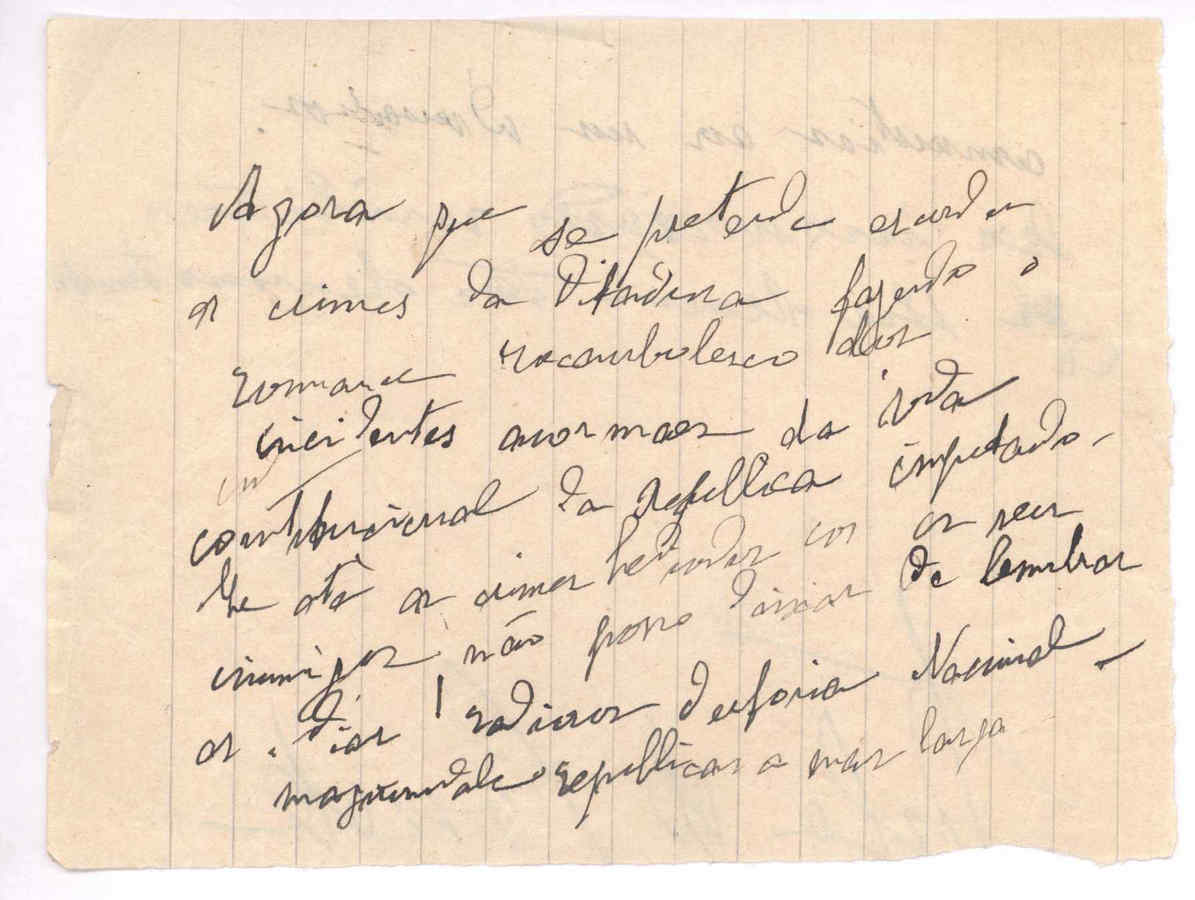 Agora que se pretende esconder
os crimes da Ditadura fazendo o
romance rocambolesco dos
incidentes anormaes da vida
constitucional da Republica imputando-
lhe até os crimes hediondos com os seus
inimigos não posso deixar de lembrar
os dias radiosos d'euforia Nacional
magnanimidade republicana mais larga